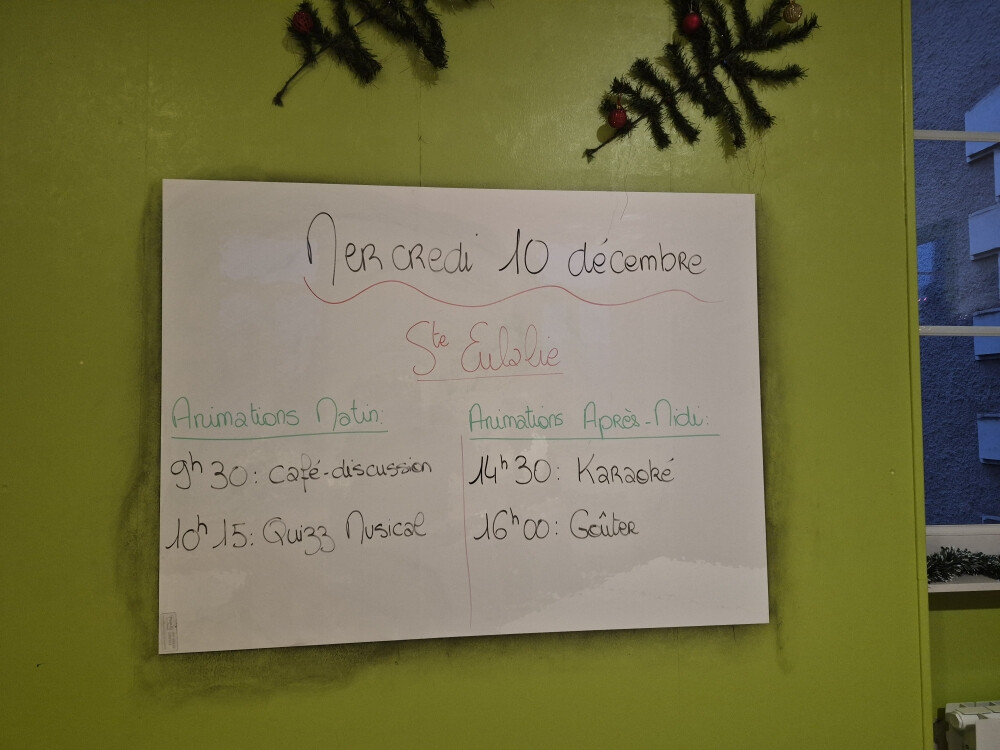 Mercredi 10 décembre
Ste Eulalie
Animations Matin:
9h30: Café-discussion
10h15: Quizz Musical
Animations Après-Midi:
14h30: Karaoké
16h00: Goûter